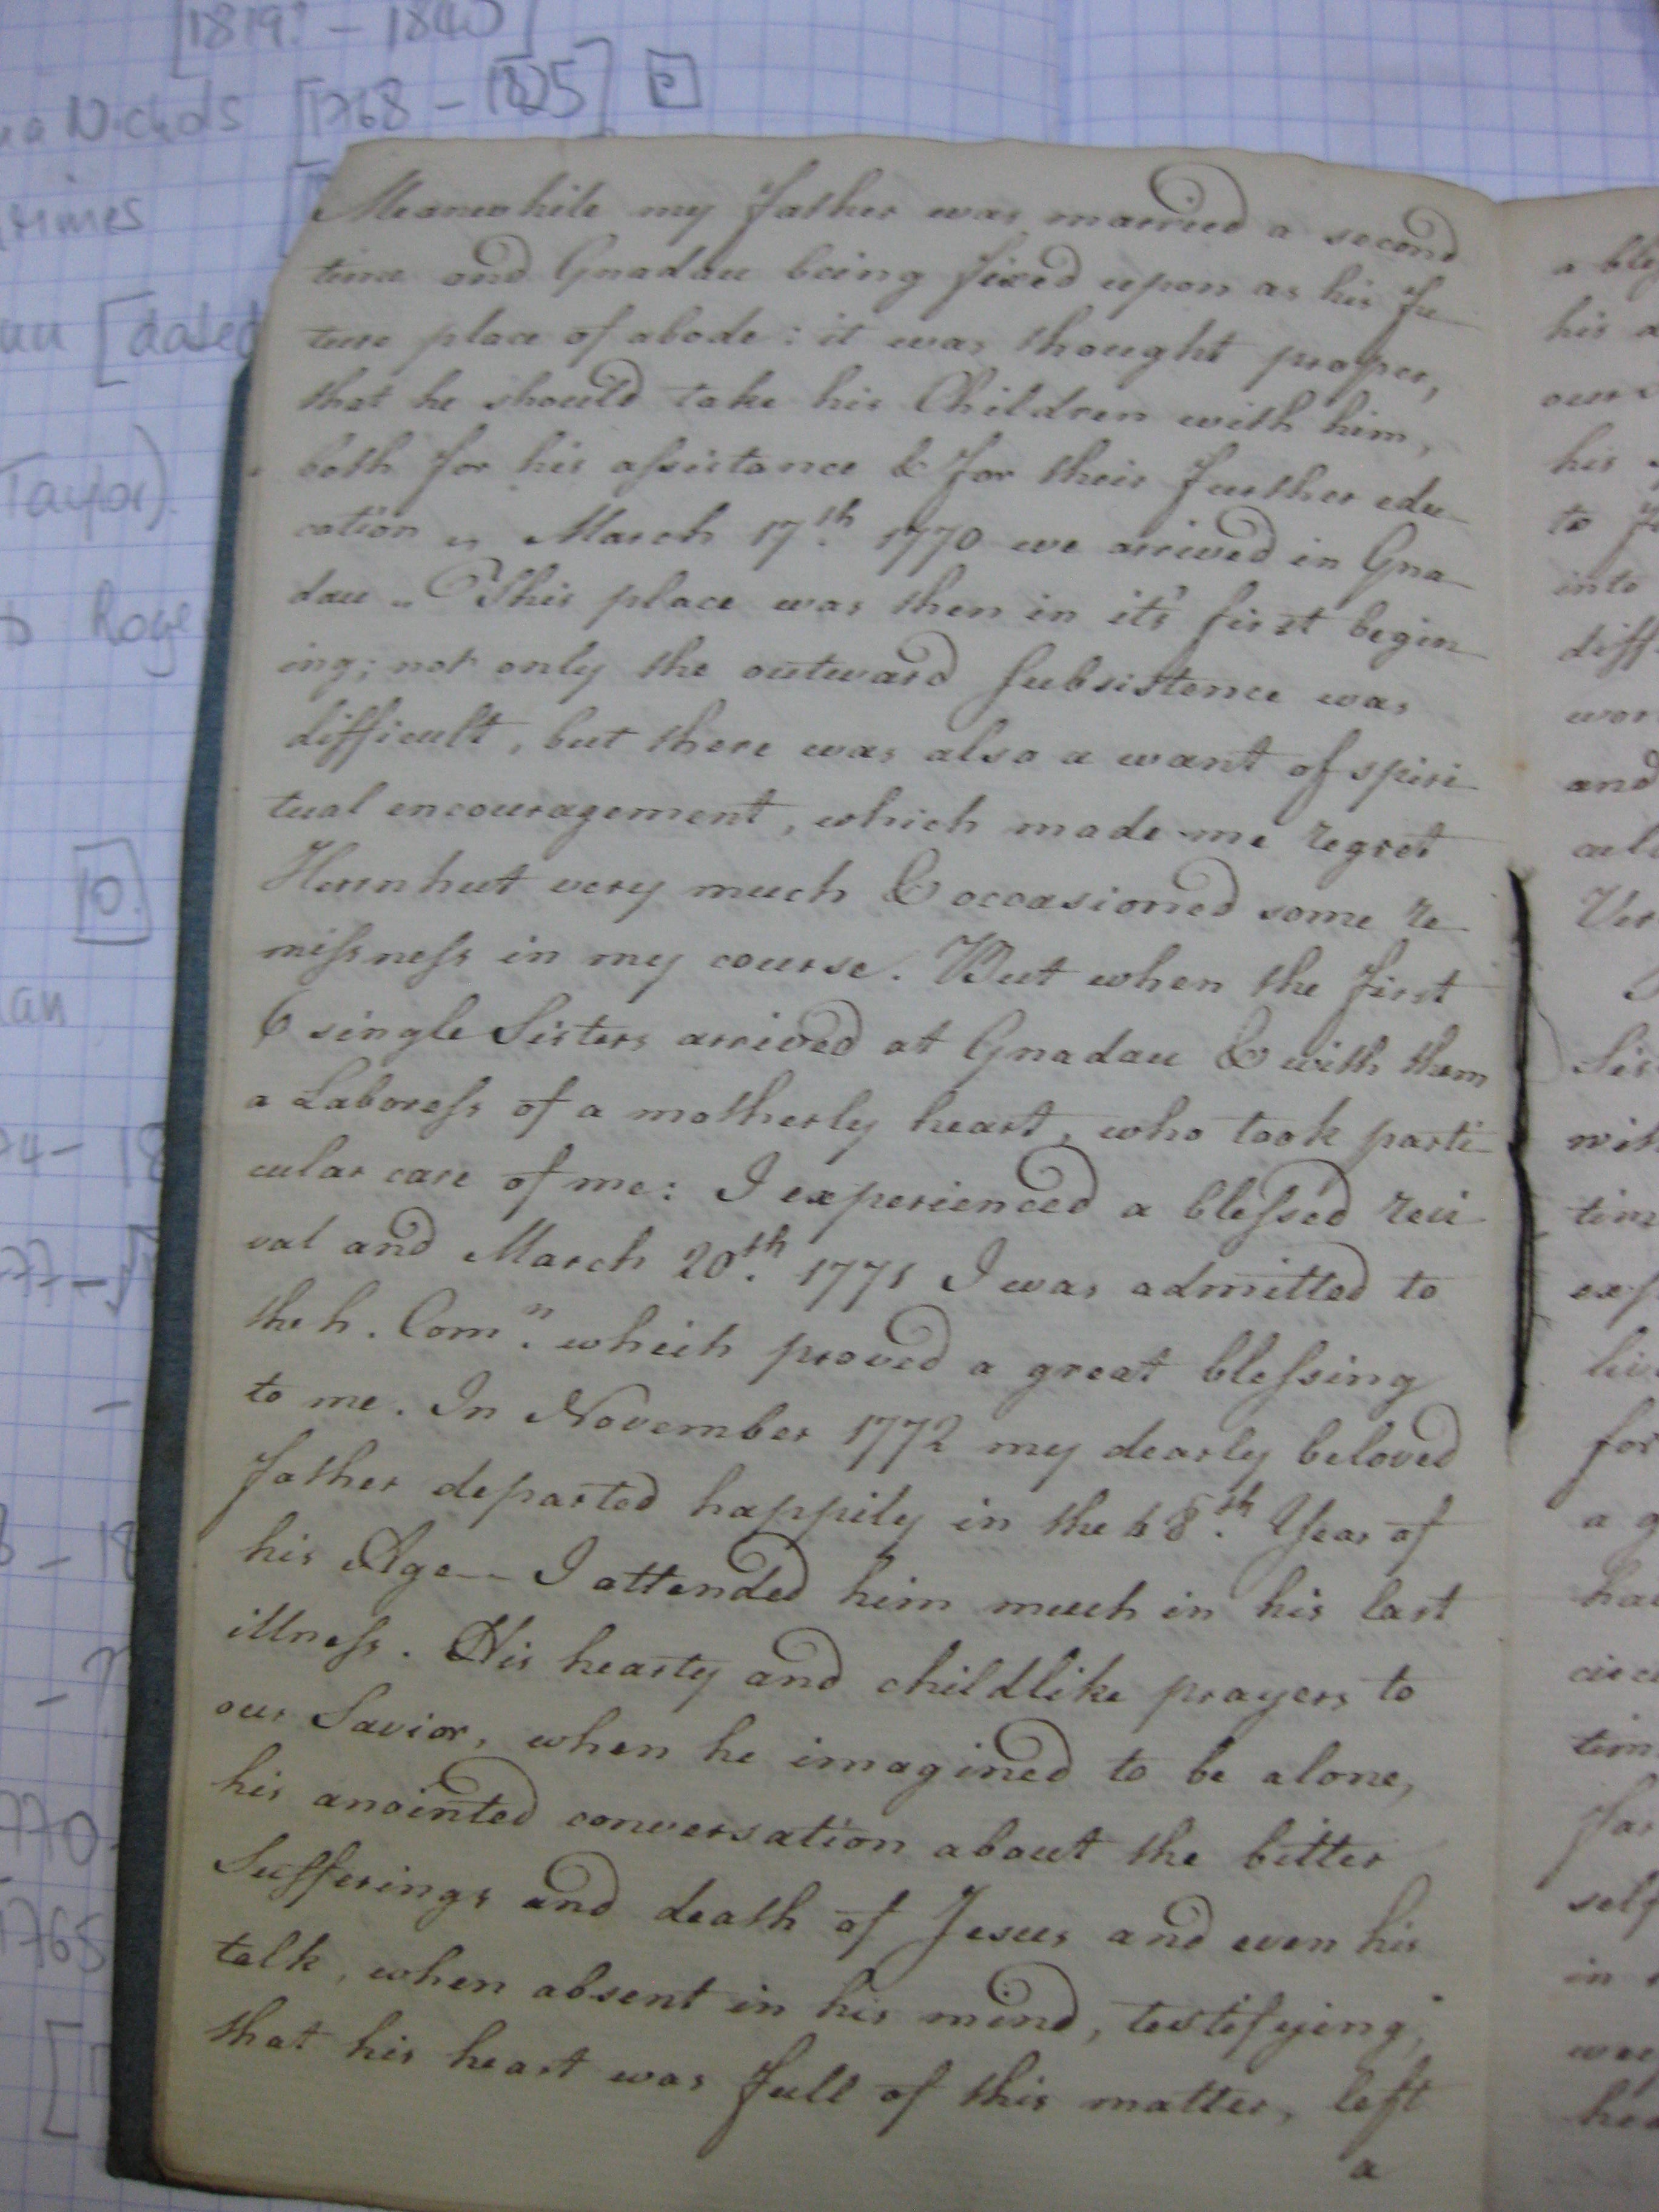 [1819? – 1840]
Nichols [1768 – 1825]
[dated
Taylor).
Roge
10.
Meanewhile my father was married a second
time and Gnadau being fixed upon as his fu-
ture place of abode: it was thought proper,
that he should take his Children with him,
both for his assistance & for their further edu-
cation „ March 17th. 1770 we arrived in Gna-
dau „ This place was then in it's first begin-
ing; not only the outward Subsistence was
difficult, but there was also a want of spiri-
tual encouragement, which made me regret
Herrnhut very much & occasioned some re-
missness in my course. But when the first
6 single Sisters arrived at Gnadau & with them
a Laboress of a motherly heart, who took parti-
cular care of me: I experienced a blessed revi-
val and March 20th. 1771 I was admitted to
the h. Comn. which proved a great blessing
to me. In November 1772 my dearly beloved
father departed happily in the 68th. Year of
his Age — I attended him much in his last
illness. His hearty and childlike prayers to
our Savior, when he imagined to be alone,
his anointed conversation about the bitter
Sufferings and death of Jesus and even his
talk, when absent in his mind, testifying,
that his heart was full of this matter, left
a
a bles
his
his
to
into
diff
wor
and
Ver
Sis
with
tim
exp
for
a g
ha
circ
tim
self
in